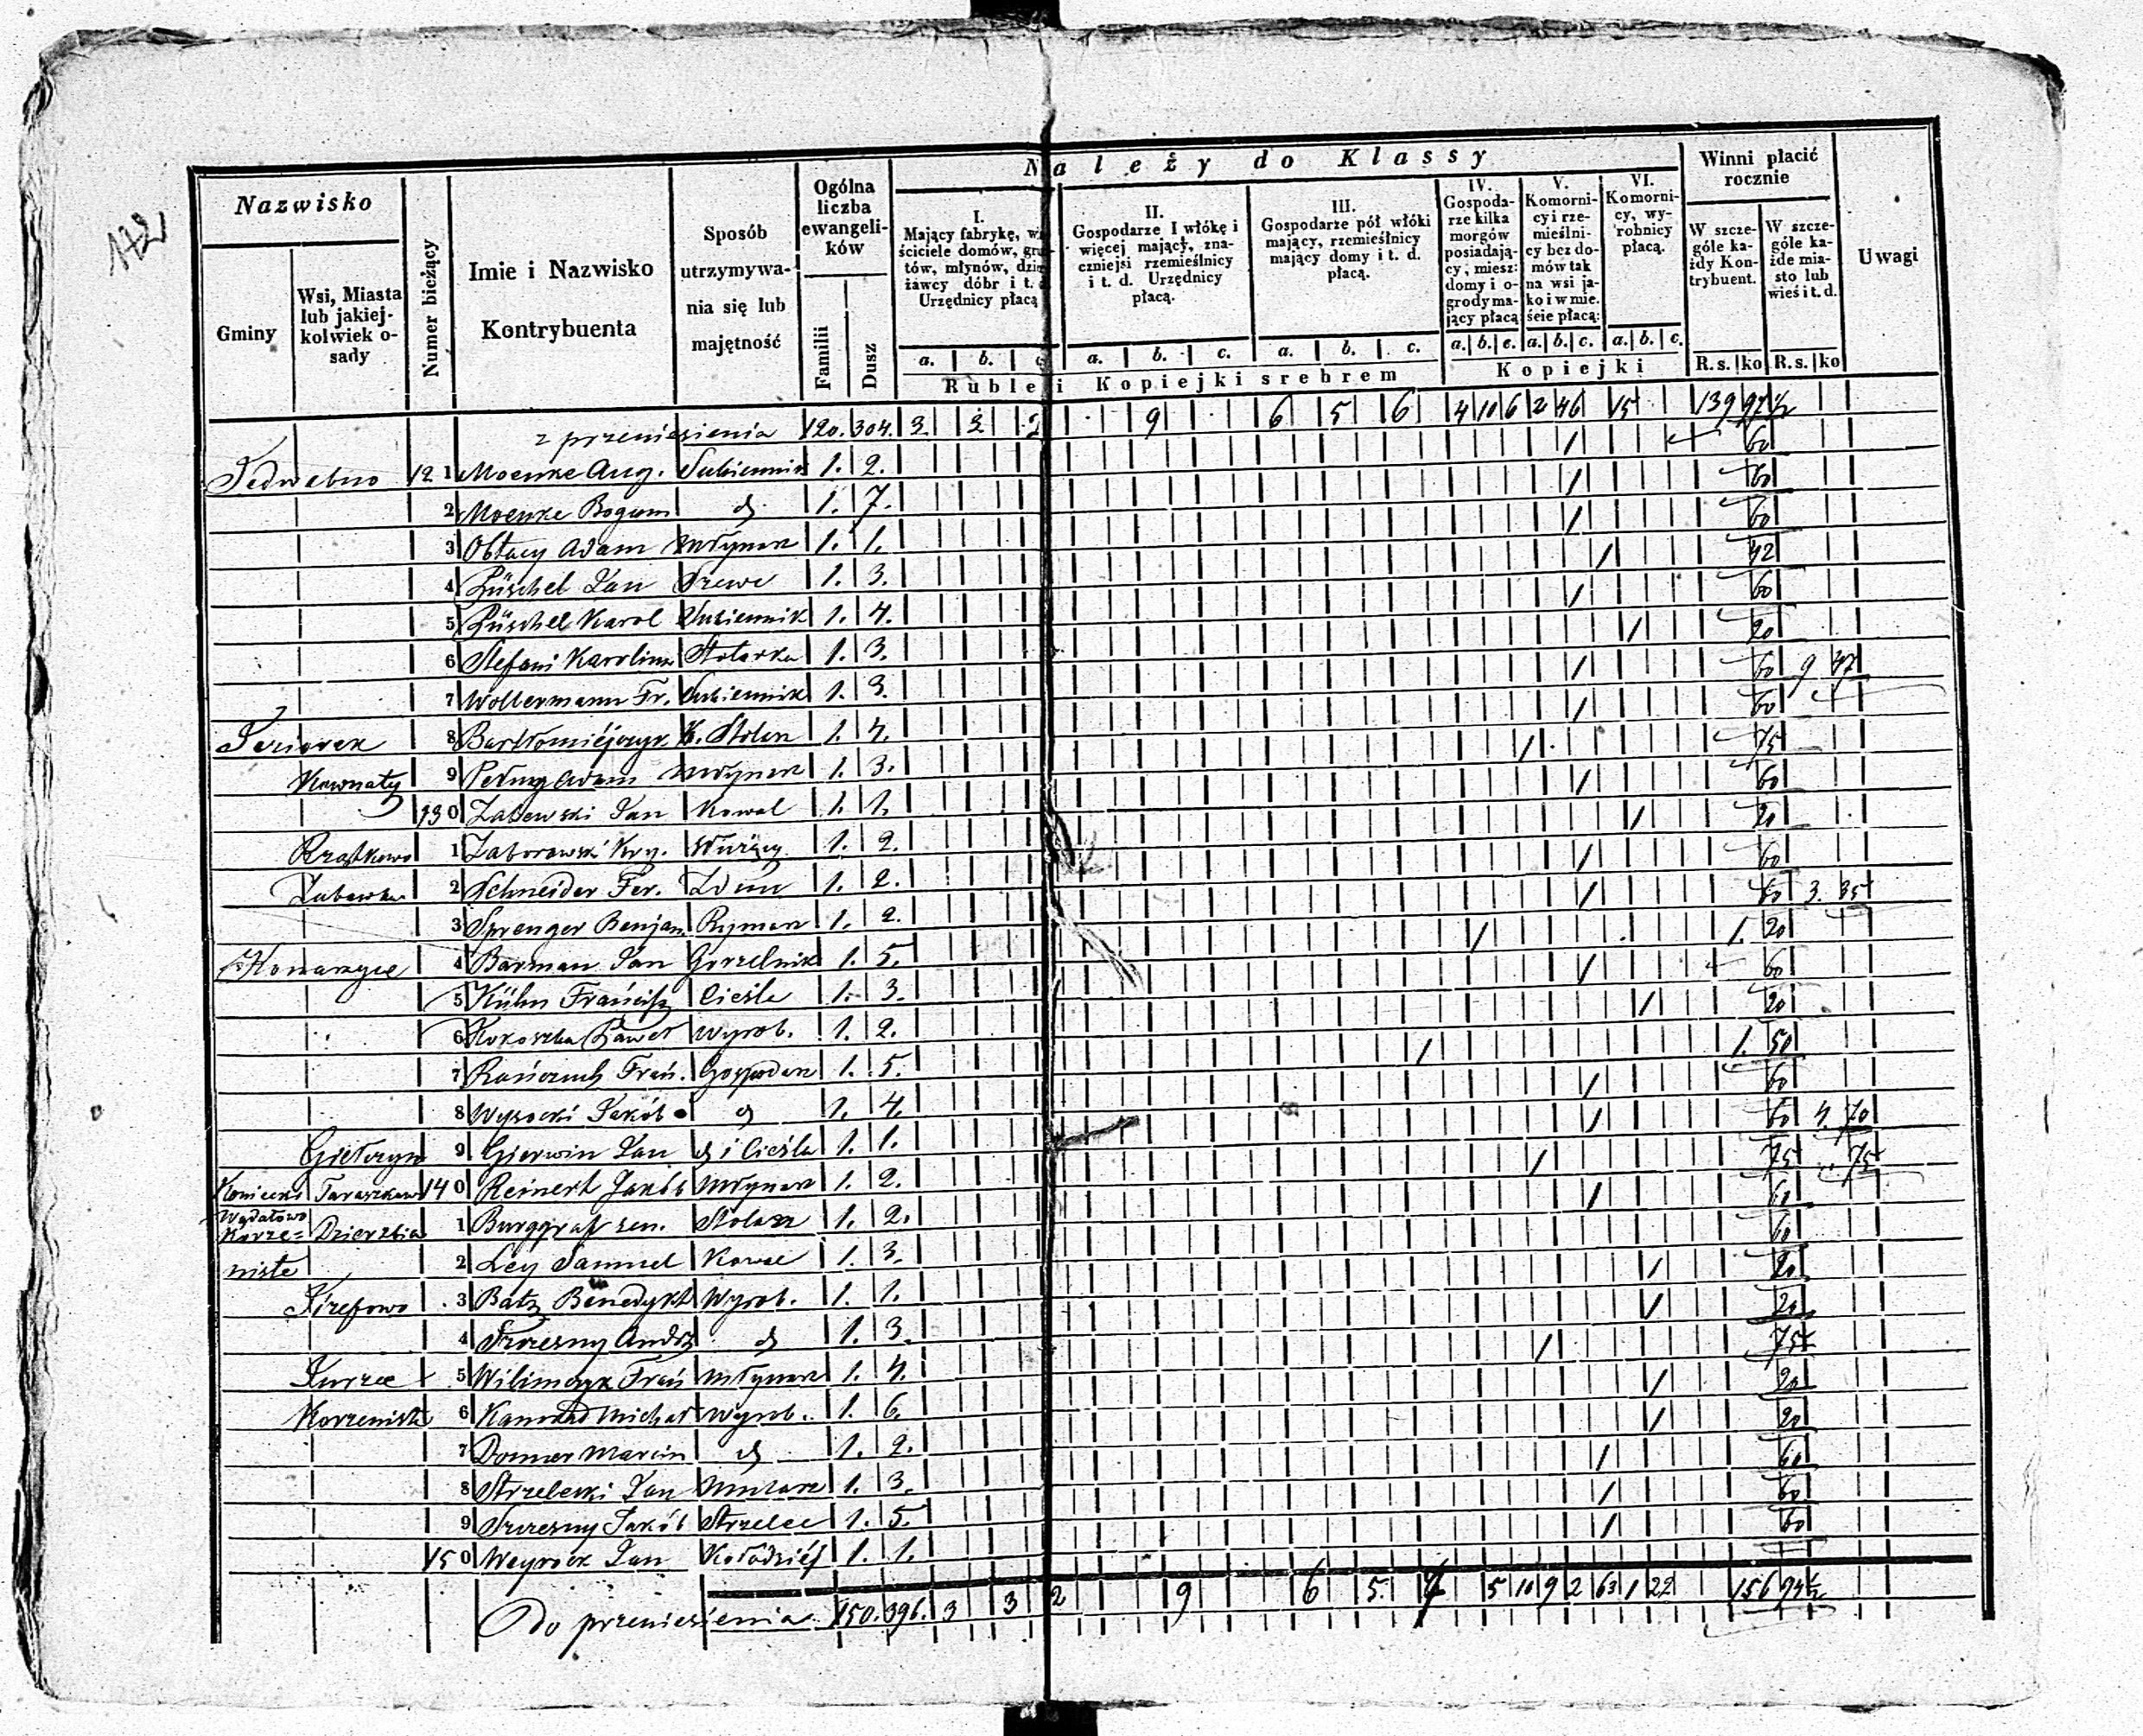 172
Należy do Klassy
Nazwisko
Gminy
Wsi, Miasta lub jakiej-kolwiek o-sady
Numer bieżący
Imie i Nazwisko Kontrybuenta
Sposób utrzymywa-nia się lub majętność
Ogólna liczba ewangeli-ków
Familii
Dusz
I. Mający fabrykę, wł ściciele domów, gru tów, młynów, dzie żawcy dóbr i t. d. Urzędnicy płacą
II. Gospodarze I włókę i więcej mający, zna-czniejsi rzemieślnicy i t. d. Urzędnicy płacą.
III. Gospodarze pół włóki mający, rzemieślnicy mający domy i t. d. płacą.
IV. Gospoda-rze kilka morgów posiadają-cy, miesz: domy i o-grody ma-jący płacą
V. Komorni-cy i rze-mieślni-cy bez do-mów tak na wsi ja-ko i w mie-ście płacą:
VI. Komorni-cy, wy-robnicy płacą.
Winni płacić rocznie
W szcze-góle ka-żdy Kon-trybuent.
W szcze-góle ka-żde mia-sto lub wieś i t. d.
Uwagi
a. b. c. a. b. c. a. b. c. a. b. c. a. b. c. a. b. c.
Ruble i Kopiejki srebrem
Kopiejki
R. s. ko R. s. ko
z przeniesienia 120. 304. 3. 3 2 9 6 5 6 4 10 6 2 46 15 139 97½
Jedwabno 12 1 Moenke Aug. Sukiennik 1. 2. 1 60
2 Moenke Bogum d 1. 7. 1 60
3 Obłacy Adam Młynarz 1. 1. 1 60
4 Püschel Jan Szewc 1. 3. 1 42
5 Püschel Karol Sukiennik 1. 4. 1 60
6 Stefani Karolina Stolarka 1. 3. 1 20
7 Woltermann Fr. Sukiennik 1. 3. 1 60 9 47
Jeziorek 8 Bartłomiejczyk K. Stolarz 1. 4. 1 60
Kownaty 9 Adam Młynarz 1. 3. 1 75
13 0 Zalewski Jan Kowal 1. 1. 1 60
Rządkowo 1 Zaborowski Kry. Służący 1. 2. 1 20
2 Schneider Fer. Zdun 1. 2. 1 60
3 Sprenger Benjam. Rymarz 1. 2. 1 60 3. 35
Konarzyce 4 Barman Jan Gorzelnik 1. 5. 1 1. 20
5 Kühn Francisz Cieśla 1. 3. 1 60
6 Kokoszka Paweł Wyrob. 1. 2. 1 20
7 Frań. Gospodarz 1. 5. 1 1. 50
8 Wysocki Jakób d 1. 4. 1 60
Giełczyn 9 Gierwin Jan d i Cieśla 1. 1. 1 60 4. 70
Taraskowo 14 0 Reinert Jakób Młynarz 1. 2. 1 75 75
Korze= Dzierzbia 1 Burggraf sen. Stolarz 1. 2. 1 60
niste 2 Ley Samuel Kowal 1. 3. 60
Józefowo 3 Batz Benedykt Wyrob. 1. 1. 1 20
4 Szczesny Andrz d 1. 3. 1 20
Kurzee 5 Wilimczyk Frań Młynarz 1. 4. 1 75
Korzeniste 6 Konrad Michał Wyrob. 1. 6. 1 20
7 Donner Marcin d 1. 2. 1 20
8 Strzelecki Jan Mularz 1. 3. 1 60
9 Szczesny Jakób Strzelec 1. 5. 1 60
15 0 Weyrock Jan Kołodziéj 1. 1. 1 60
Do przeniesienia 150. 396. 3 3 2 9 6 5. 7 5 10 9 2 63 1 22 156 94½